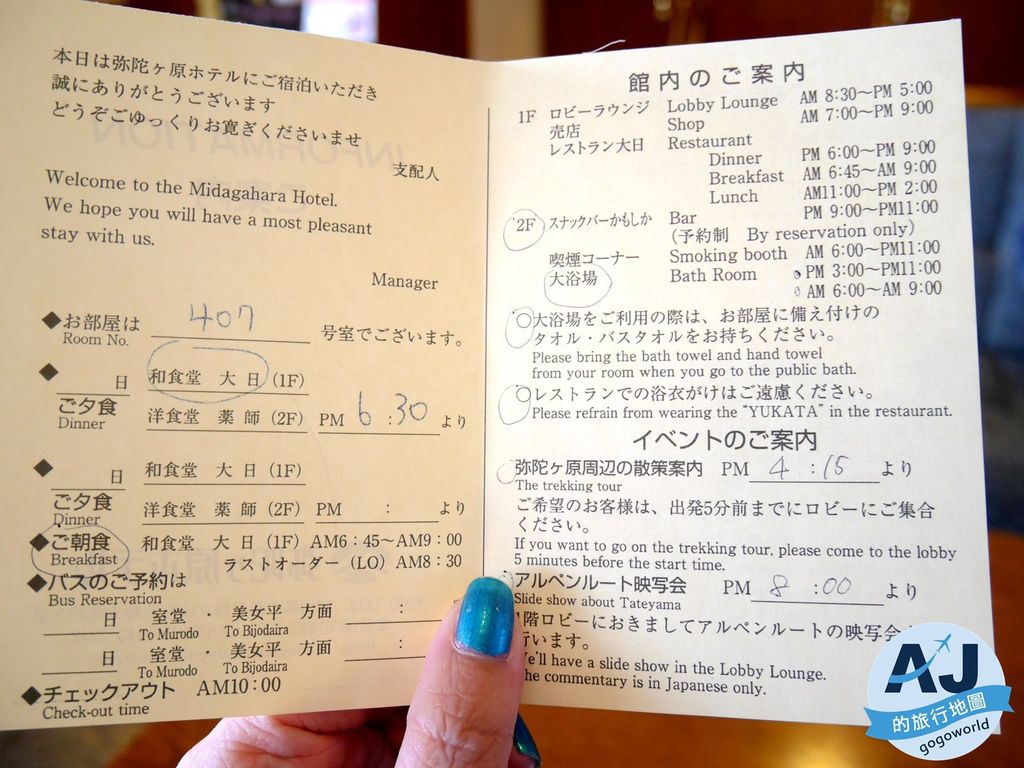 本日は弥陀ヶ原ホテルにご宿泊いただき
誠にありがとうございます
どうぞごゆっくりお寛ぎくださいませ
支配人
Welcome to the Midagahara Hotel.
We hope you will have a most pleasant
stay with us.
Manager
◆お部屋は 407 号室でございます。
Room No.
◆ 日 和食堂 大日 (1F)
ご夕食 洋食堂 薬師 (2F) PM 6:30 より
Dinner
◆ 日 和食堂 大日 (1F)
ご夕食 洋食堂 薬師 (2F) PM : より
Dinner
◆ご朝食 和食堂 大日 (1F) AM6:45〜AM9:00
Breakfast ラストオーダー (LO) AM8:30
◆バスのご予約は
Bus Reservation
日 室堂・美女平 方面 :
To Murodo To Bijodaira
日 室堂・美女平 方面 :
To Murodo To Bijodaira
◆チェックアウト AM10:00
Check-out time
館内のご案内
1F ロビーラウンジ Lobby Lounge AM 8:30〜PM 5:00
売店 Shop AM 7:00〜PM 9:00
レストラン大日 Restaurant
Dinner PM 6:00〜PM 9:00
Breakfast AM 6:45〜AM 9:00
Lunch AM11:00〜PM 2:00
2F スナックバーかもしか Bar PM 9:00〜PM11:00
(予約制 By reservation only)
喫煙コーナー Smoking booth AM 6:00〜PM11:00
大浴場 Bath Room PM 3:00〜PM11:00
AM 6:00〜AM 9:00
○大浴場をご利用の際は、お部屋に備え付けの
タオル・バスタオルをお持ちください。
Please bring the bath towel and hand towel
from your room when you go to the public bath.
○レストランでの浴衣がけはご遠慮ください。
Please refrain from wearing the "YUKATA" in the restaurant.
イベントのご案内
弥陀ヶ原周辺の散策案内 PM 4:15 より
The trekking tour
ご希望のお客様は、出発5分前までにロビーにご集合
ください。
If you want to go on the trekking tour, please come to the lobby
5 minutes before the start time.
アルペンルート映写会 PM 8:00 より
Slide show about Tateyama
1階ロビーにおきましてアルペンルートの映写会
行います。
We'll have a slide show in the Lobby Lounge.
The commentary is in Japanese only.
AJ
的旅行地圖
gogoworld